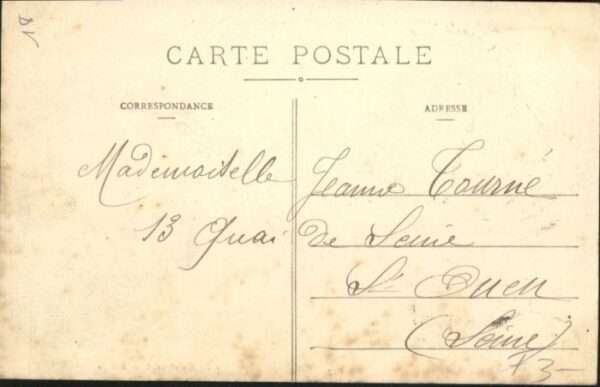 18
CARTE POSTALE
CORRESPONDANCE
ADRESSE
Mademoiselle Jeanne Tourné
13 Quai de Seine
St Ouen
(Seine)